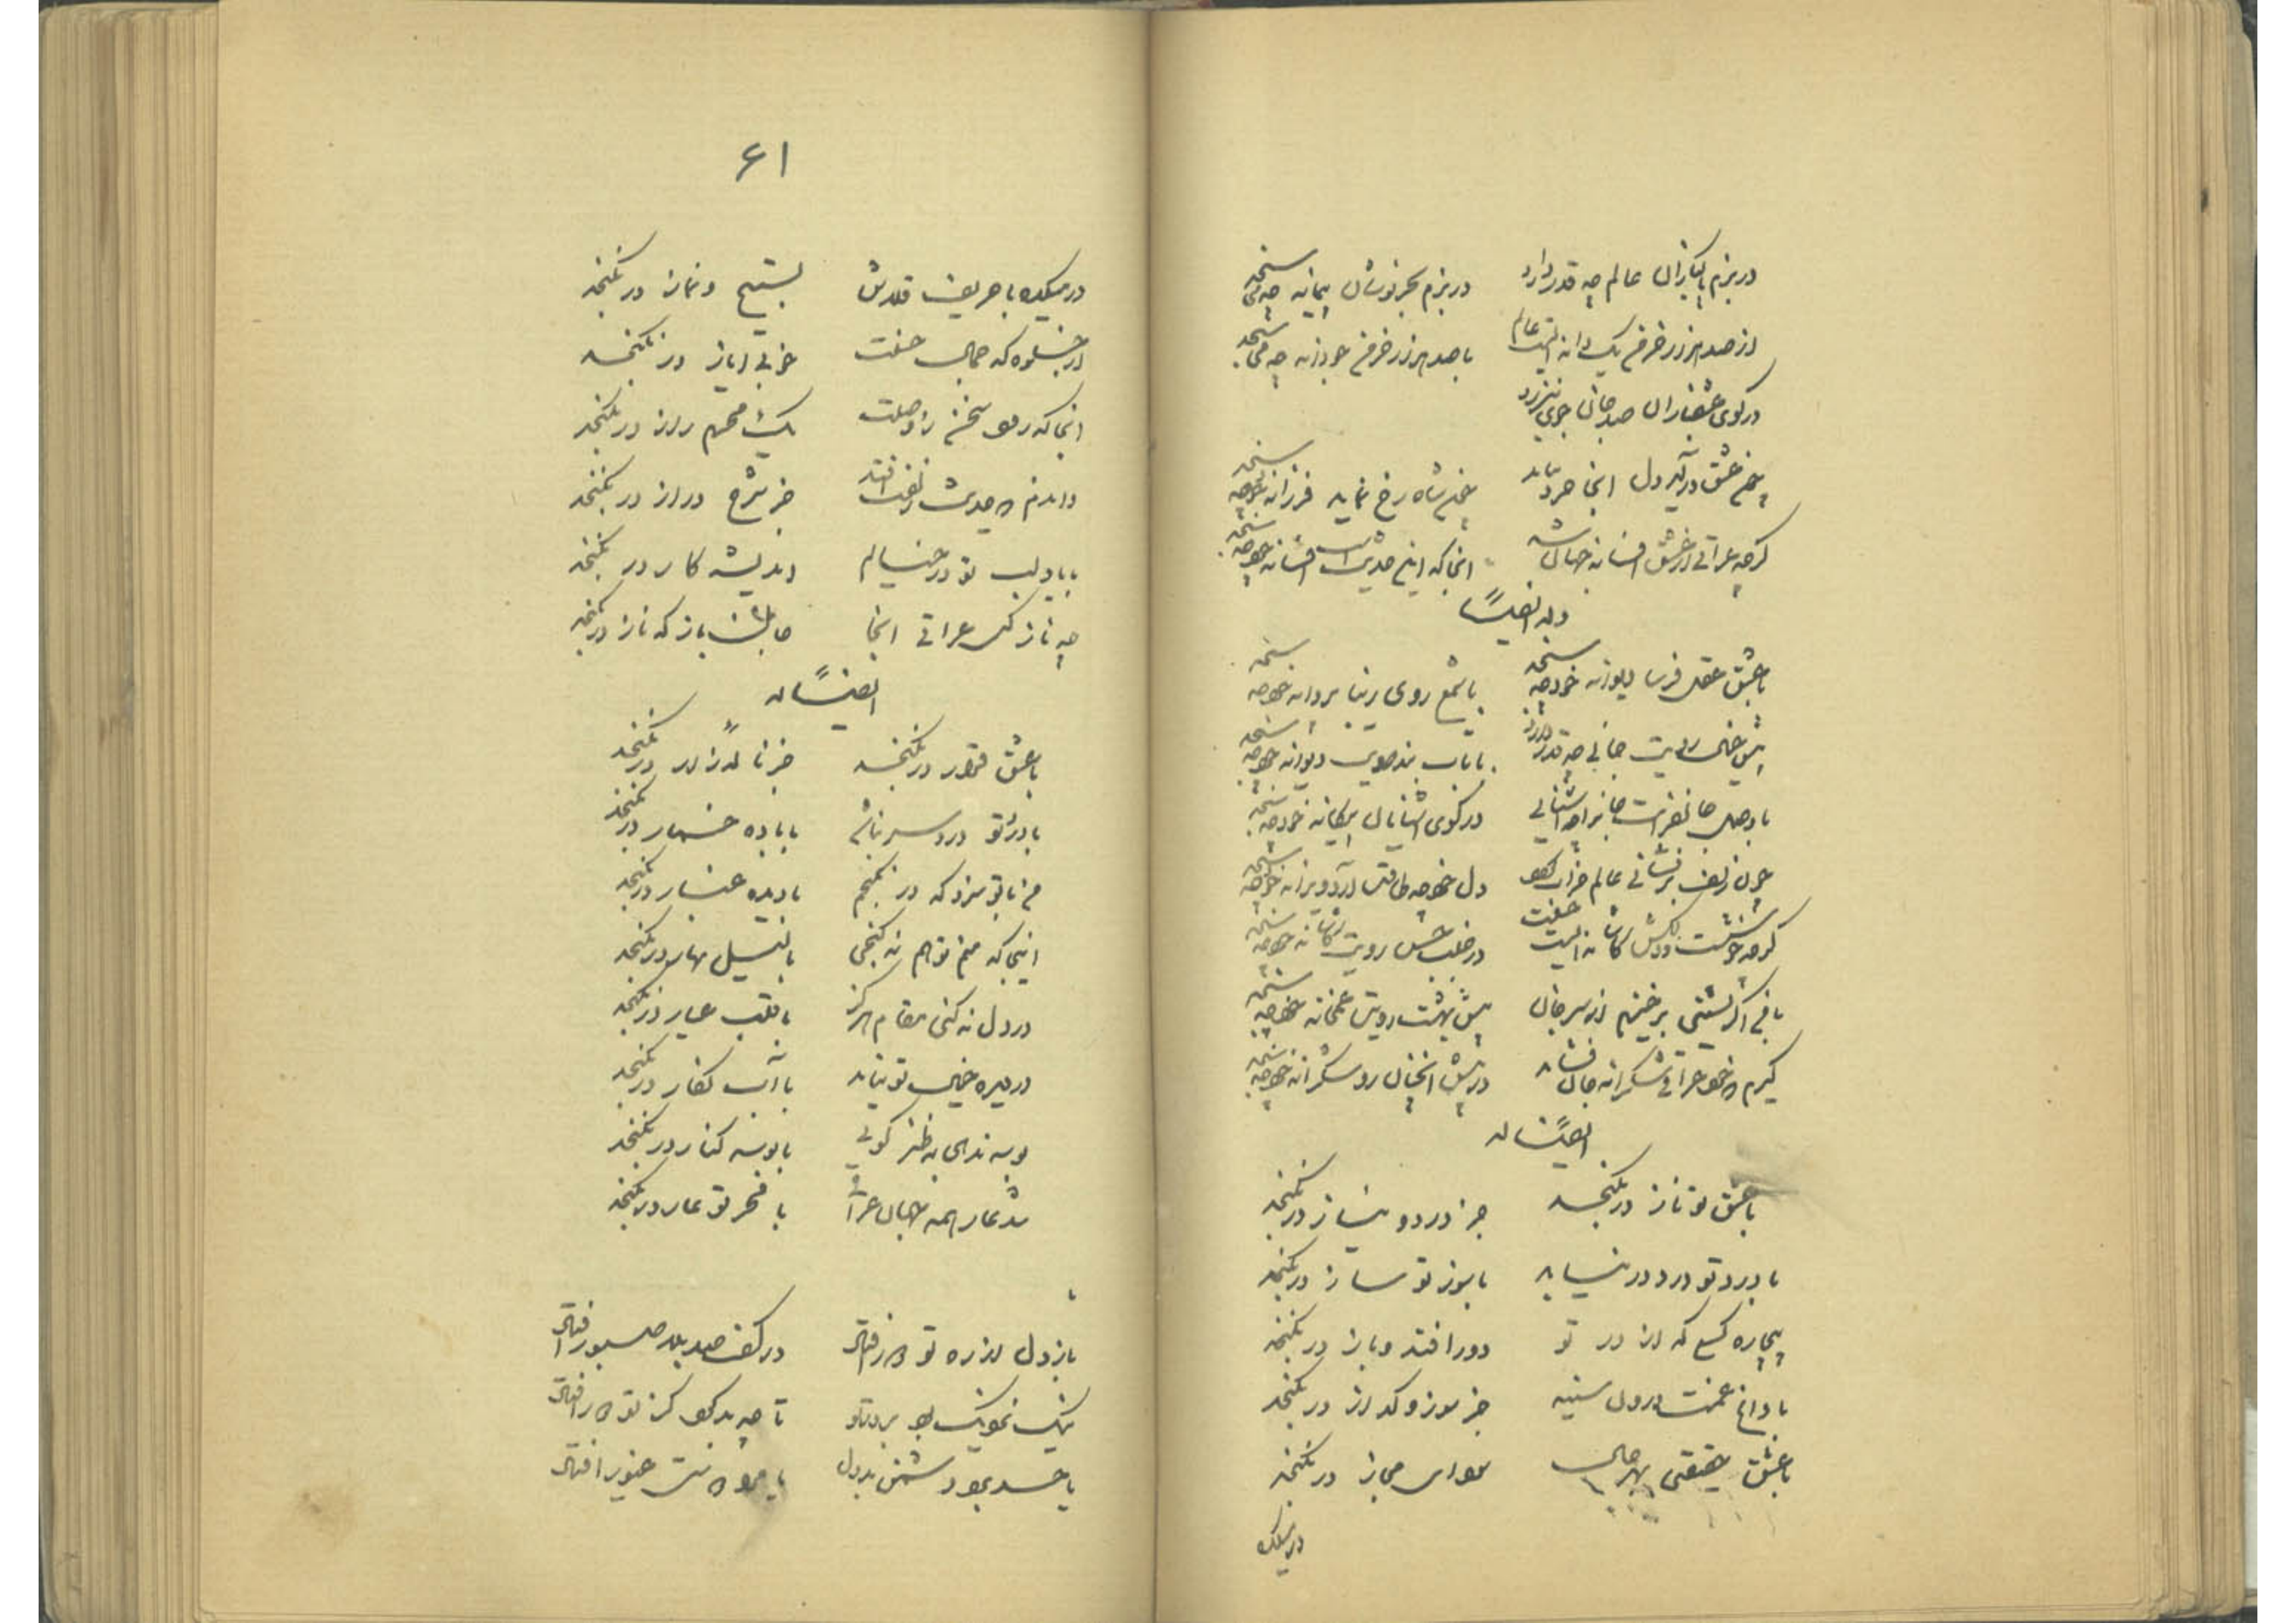 در بزم پاکبازان عالم چه قدر دارد در بزم بحر نوشان پیمانه چه سنجد
از صد هزار خرمن یک دانه است عالم با صد هزار خرمن خود دانه چه سنجد
در کوی عشقبازان صد جان جوی نیرزد
چون عشق در دل آید اینجا خرد نیاید چون شاه رخ نماید فرزانه خود چه سنجد
گرچه عراقی از عشق افسانه جهان شد آنجا که این حدیث است افسانه خود چه سنجد
وله ایضاً
با عشق عقل فرسا دیوانه خود چه سنجد با شمع روی زیبا پروانه خود چه سنجد
پیش خیال رویت جانی چه قدر دارد با تاب بند مویت دیوانه خود چه سنجد
با وصل جانفزایت جان را چه آشنائی در کوی آشنایان بیگانه خود چه سنجد
چون زلف برفشانی عالم خراب گردد دل خود چه طاقت آرد ویرانه خود چه سنجد
گرچه خوشست و دلکش کاشانه است جنت در جنب حسن رویت کاشانه خود چه سنجد
با من اگر نشینی برخیزم از سر جان پیش بهشت رویت غمخانه خود چه سنجد
گیرم که خود عراقی شکرانه جان فشاند در پیش آنچنان رو شکرانه خود چه سنجد
ایضاً له
با عشق تو ناز در نگنجد جز درد و نیاز در نگنجد
با درد تو درد در نیاید با سوز تو ساز در نگنجد
بیچاره کسی که از در تو دور افتد و باز در نگنجد
با داغ غمت درون سینه جز سوز و گداز در نگنجد
با عشق حقیقتی بهر حال سودای مجاز در نگنجد
در میکده
۶۱
در میکده با حریف قلاش تسبیح و نماز در نگنجد
در جلوه که جمال حسنت خوبی ایاز در نگنجد
آنجا که رود سخن ز وصلت یک محرم راز در نگنجد
واندم که حدیث زلفت افتد جز شرح دراز در نگنجد
با یاد لب تو در خیالم اندیشه کار در نگنجد
چه ناز کنی عراقی اینجا جان باز که ناز در نگنجد
ایضاً له
با عشق قرار در نگنجد جز ناله زار در نگنجد
با درد تو درد سر نباشد با باده خمار در نگنجد
من با تو سزد که در نگنجم با دیده غبار در نگنجد
اینجا که منم تو هم نه گنجی با لیل نهار در نگنجد
در دل نه کنی مقام هرگز با قلب عیار در نگنجد
در دیده خیال تو نیاید با آب نگار در نگنجد
بوسه ندهی به طنز گوئی با بوسه کنار در نگنجد
شد عار همه جهان عراقی با فخر تو عار در نگنجد
باز دل از ره تو دور افتاد در کف صد بلا صبور افتاد
نیک نزدیک بود بر در تو تا چه بد کرد کز تو دور افتاد
یا حسد برد دشمن بد دل یا مرا دوستی غیور افتاد